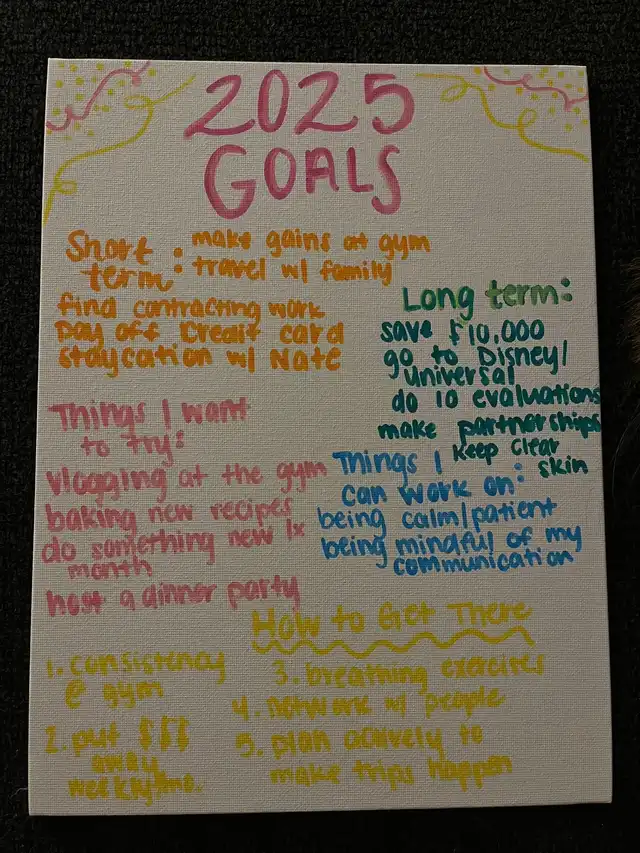 2025
GOALS
Short term:
: make gains at gym
travel w/ family
find contracting work
pay off credit card
staycation w/ Nate
Long term:
save $10,000
go to Disney/
universal
do 10 evaluations
make partnerships
keep clear
skin
Things I want
to try:
vlogging at the gym
baking new recipes
do something new 1x
month
host a dinner party
Things I
can work on:
being calm/patient
being mindful of my
communication
How to Get There
1. consistency
@ gym
2. put $$$
away
weekly/mo.
3. breathing exercises
4. network w/ people
5. plan actively to
make trips happen